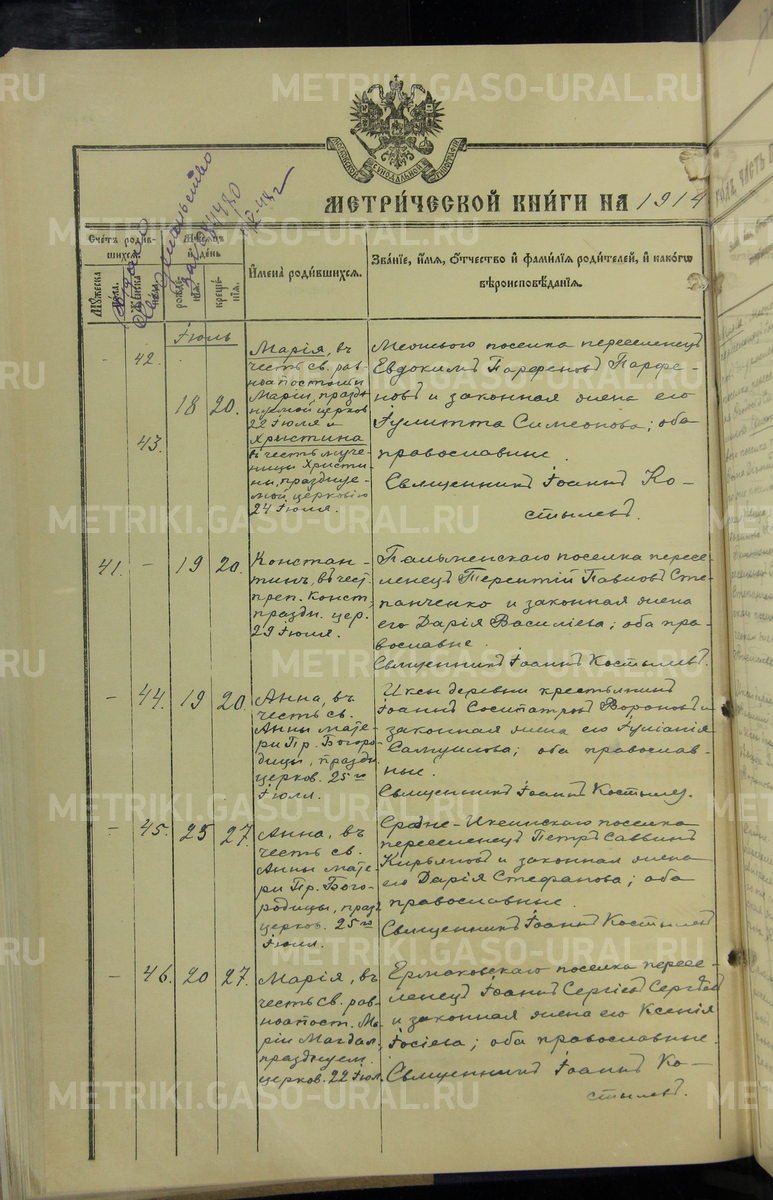 МОСКОВСКОЙ СѴНОДАЛЬНОЙ ТИПОГРАФІИ
МЕТРИ́ЧЕСКОЙ КНИ́ГИ НА 1914
Выдано
свидетельство
за
Счетъ роди́в-
шихсѧ.
Мѣсѧцъ
и҆ де́нь
Мꙋжеска
по́ла.
Же́нска
по́ла.
рожде́-
нїѧ.
креще́-
нїѧ.
И҆мена̀ роди́вшихсѧ.
Зва́нїе, и҆́мѧ, ѻ҆́тчество и҆ фами́лїѧ роди́телей, и҆ како́гѡ
вѣроисповѣ́данїѧ.
Іюль
- 42. 18 20.
43.
Марія, въ
честь св. рав-
ноапостольн
Маріи, праздн
нуемой церков
22 Іюля и
Христина
въ честь муче-
ницы Христи-
ны, празднуе-
мой церковію
24 Іюля.
поселка переселенецъ
Евдокимъ Парфеновъ Парфе-
новъ и законная жена его
Іулитта Симеонова; оба
православные.
Священникъ Іоаннъ Ко-
стылевъ.
41. - 19 20.
Констан-
тинъ, въ чест
преп. Конст,
праздн. цер.
29 Іюля.
поселка пересе-
ленецъ Терентій Павловъ Сте-
панченко и законная жена
его Дарія Василіева; оба пра-
вославные.
Священникъ Іоаннъ Костылевъ.
- 44. 19 20.
Анна, въ
честь св.
Анны мате-
ри Пр. Богоро-
дицы, праздн
церков. 25го
Іюля.
Иксы деревни крестьянинъ
Іоаннъ Сосипатровъ Вороновъ и
законная жена его Іуліанія
Самуилова; оба православ-
ные.
Священникъ Іоаннъ Костылев.
- 45. 25 27.
Анна, въ
честь св.
Анны мате-
ри Пр. Бого-
родицы, празд
церков. 25го
Іюля.
Средне-Иксинскаго поселка
переселенецъ Петръ Саввинъ
Кирьяновъ и законная жена
его Дарія Стефанова; оба
православные.
Священникъ Іоаннъ Костылевъ
- 46. 20 27.
Марія, въ
честь св. рав-
ноапост. Ма-
ріи Магдал,
празднуем.
церков. 22 Іюл.
Ермаковскаго поселка пересе-
ленецъ Іоаннъ Сергіевъ
и законная жена его Ксенія
Іосіева; оба православные.
Священникъ Іоаннъ Ко-
стылевъ.
METRIKI.GASO-URAL.RU